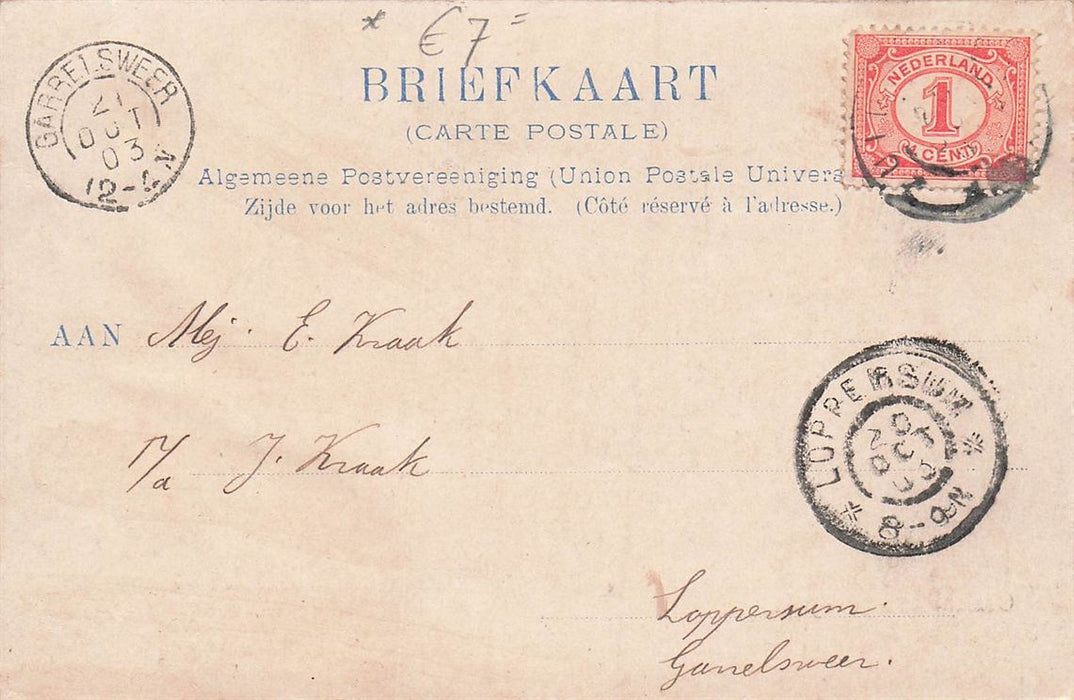 * € 7 =
GARRELSWEER
21
OCT
03
12-4N
BRIEFKAART
(CARTE POSTALE)
Algemeene Postvereeniging (Union Postale Univers
Zijde voor het adres bestemd. (Côté réservé à l'adresse.)
NEDERLAND
1
1 CENT
AAN Mej. E. Kraak
P/a J. Kraak
* LOPPERSUM *
OCT
03
8-9N
Loppersum.
Garrelsweer.